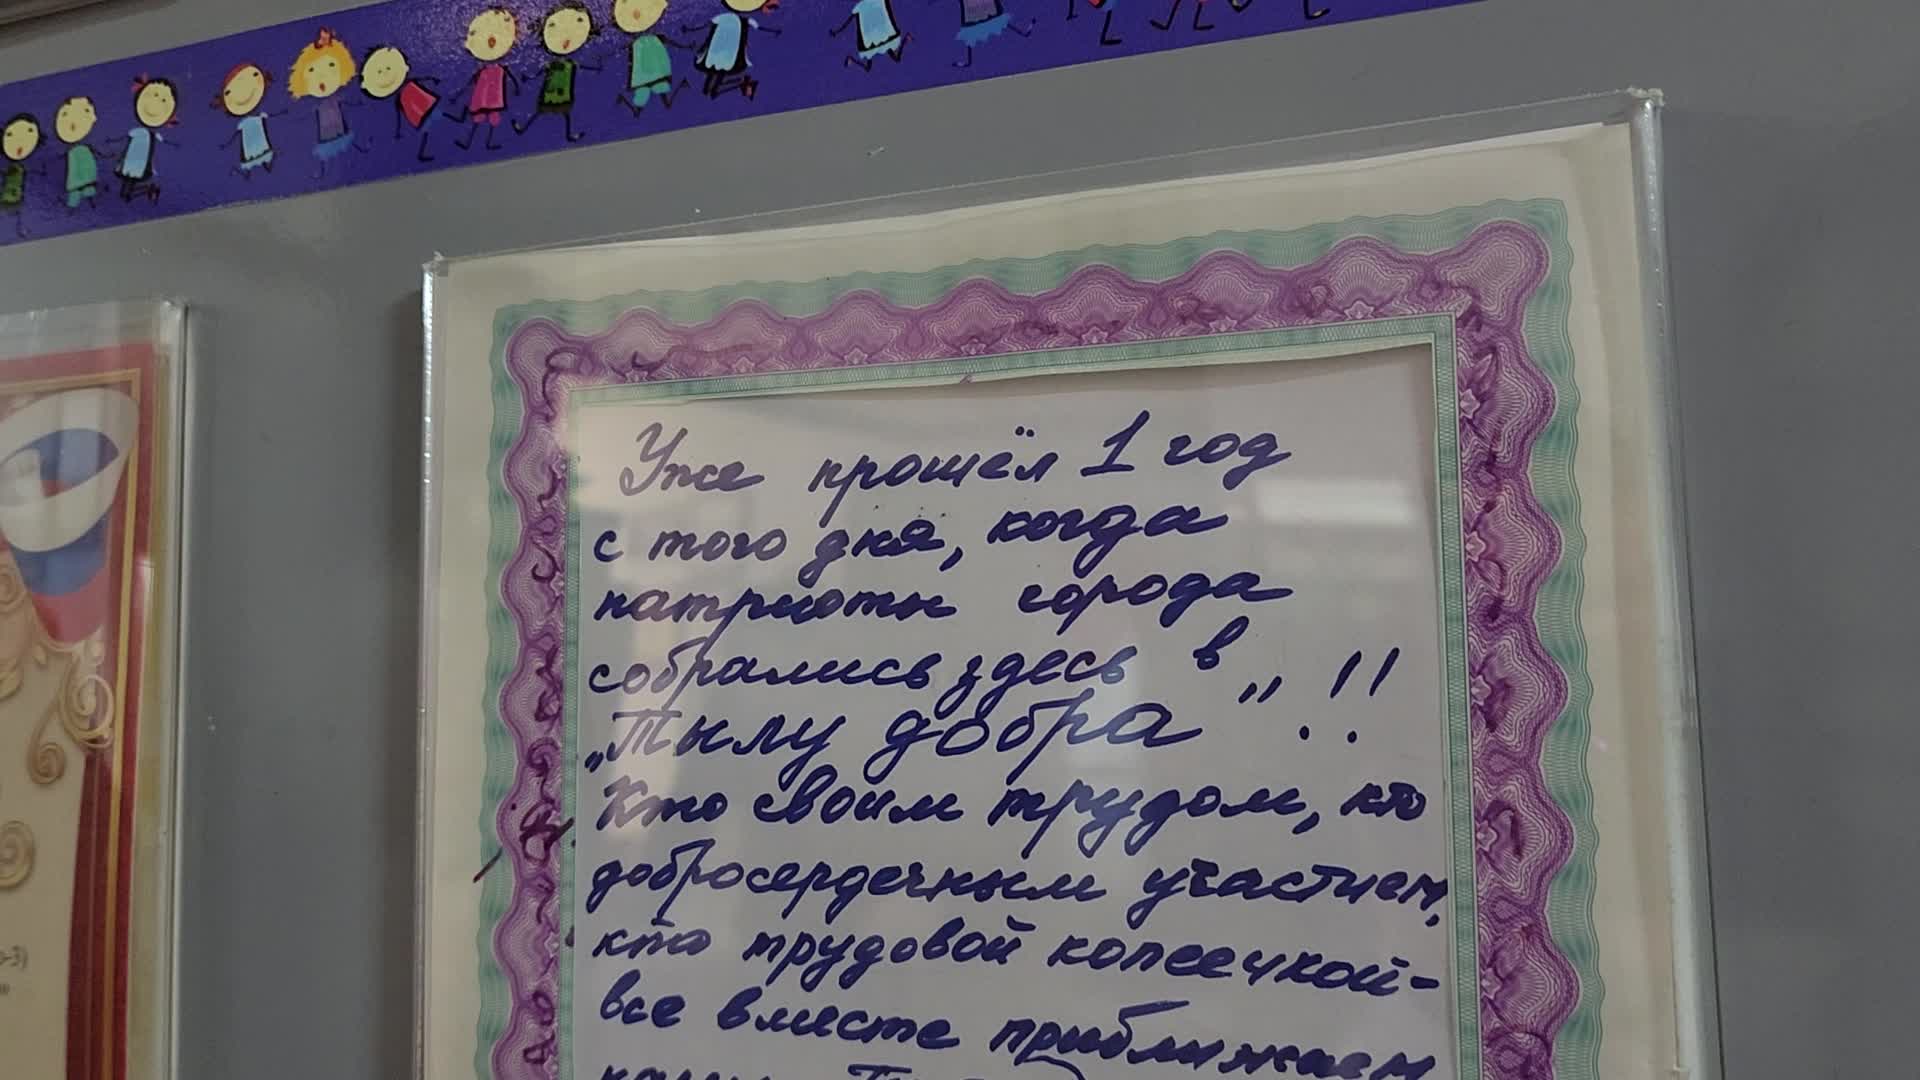 Уже прошёл 1 год
с того дня, когда
патриоты города
собрались здесь в
„Тылу добра".!!
Кто своим трудом, кто
добросердечным участием,
кто трудовой копеечкой-
все вместе приближаем